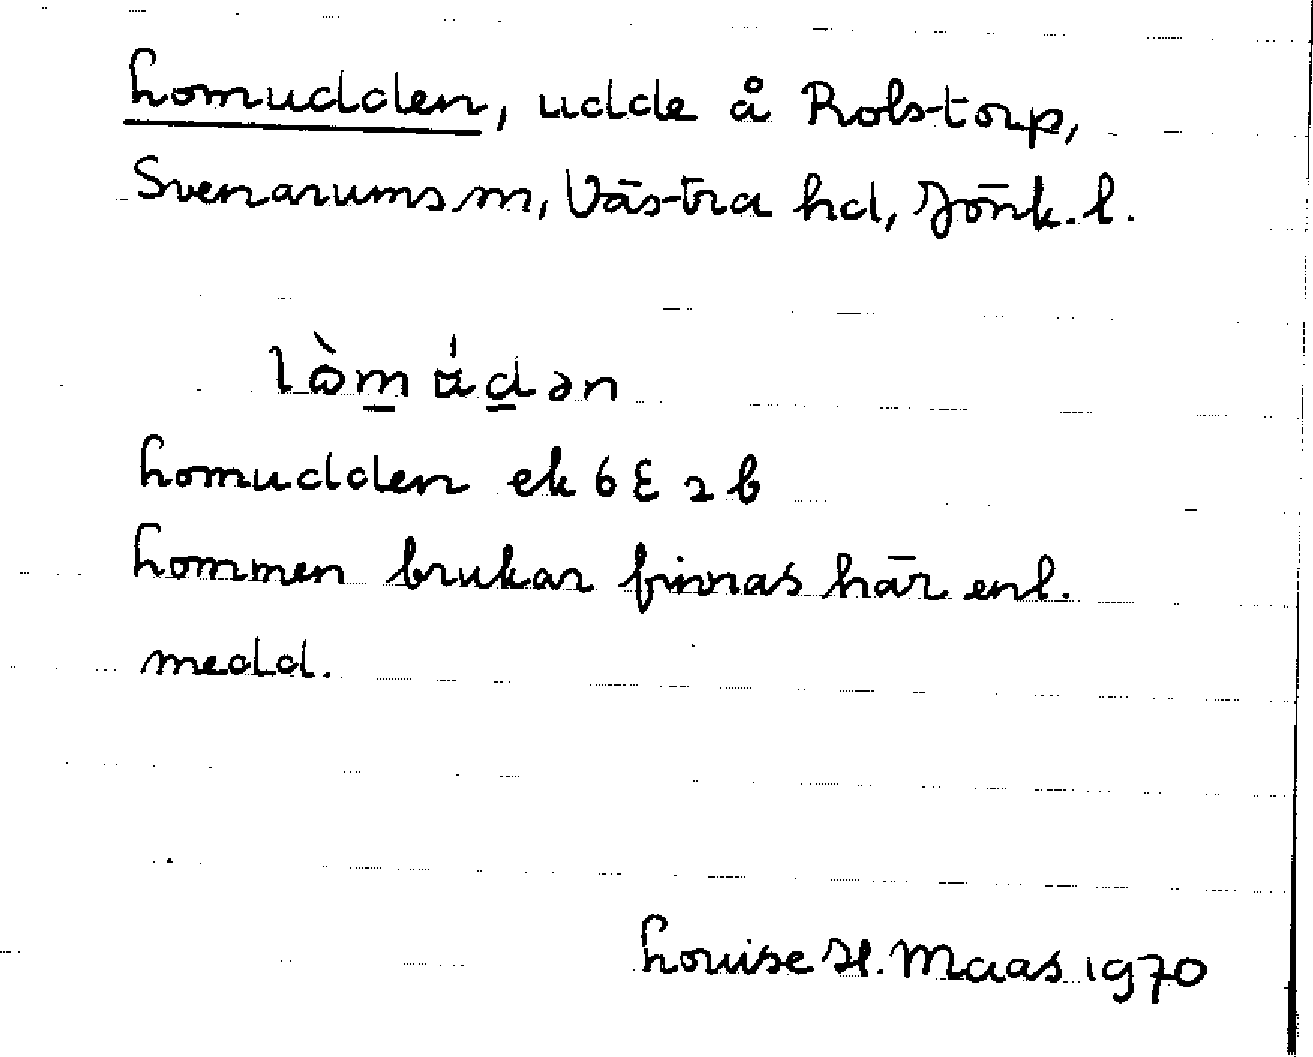 Lomudden, udde å Rolstorp,
Svenarums sn, Västra hd, Jönk. l.
lòm ádən
Lomudden ek 6 E 2 b
Lommen brukar finnas här enl.
medd.
Louise H. Maas 1970